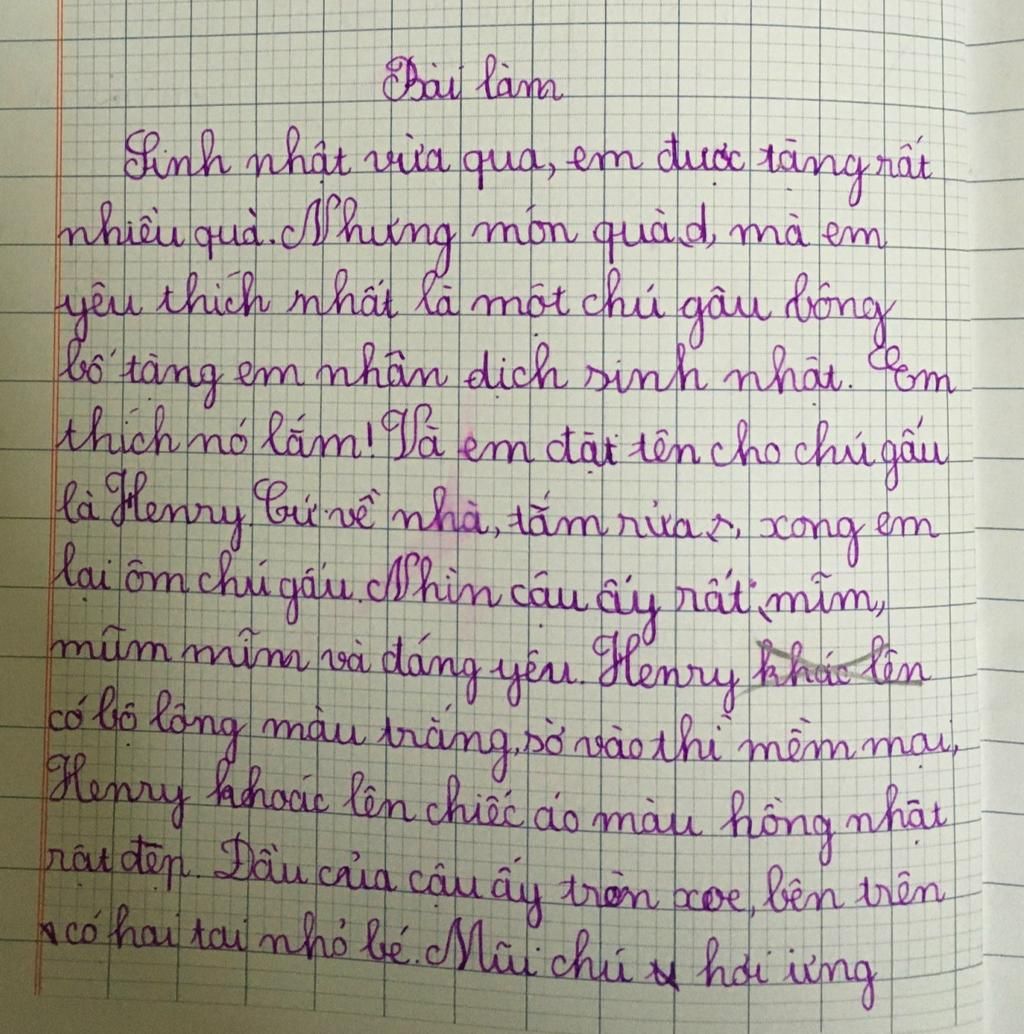 Bài làm
Sinh nhật vừa qua, em được tặng rất
nhiều quà. Nhưng món quà mà em
yêu thích nhất là một chú gấu bông
bố tặng em nhân dịch sinh nhật. Em
thích nó lắm! Và em đặt tên cho chú gấu
là Henry. Cứ về nhà, tắm rửa xong em
lại ôm chú gấu. Nhìn cậu ấy rất mĩm,
mũm mĩm và đáng yêu. Henry khác lên
có bộ lông màu trắng, sờ vào thì mềm mại,
Henry khoác lên chiếc áo màu hồng nhạt
rất đẹp. Đầu của cậu ấy tròn xoe, bên trên
có hai tai nhỏ bé. Mũi chú hơi ửng